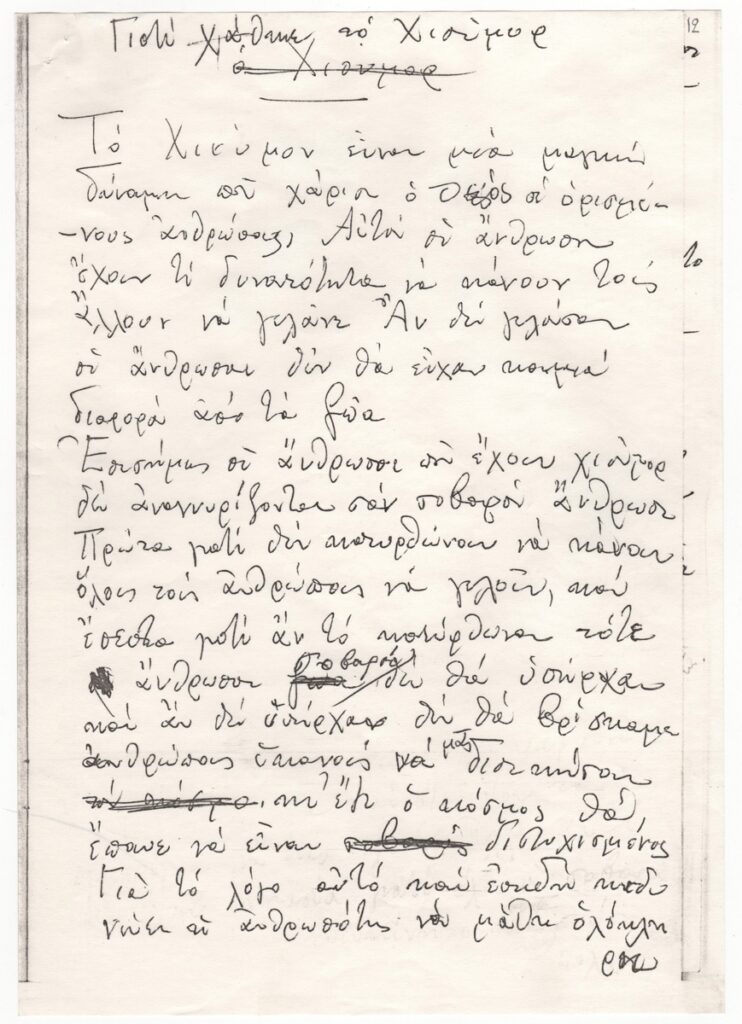 12
Γιατί χάθηκε τό Χιούμορ
ὁ Χιούμορ
Τό Χιούμορ εἶναι μιά μαγική
δύναμη πού χάρισε ὁ Θεός σέ ὁρισμέ
-νους ἀνθρώπους, Αὐτοί οἱ ἄνθρωποι
ἔχουν τή δυνατότητα νά κάνουν τούς
ἄλλους νά γελᾶνε Ἄν δέν γελοῦσαν
οἱ ἄνθρωποι δέν θά εἶχαν καμμιά
διαφορά ἀπό τά ζῶα
Ἐπισήμως οἱ ἄνθρωποι πού ἔχουν χιούμορ
δέν ἀναγνωρίζονται σάν σοβαροί ἄνθρωποι
Πρῶτα γιατί δέν κατορθώνουν νά κάνουν
ὅλους τούς ἀνθρώπους νά γελοῦν, καί
ἔπειτα γιατί ἄν τό κατόρθωναν τότε
ἄνθρωποι σοβαροί δέν θά ὑπῆρχαν
καί ἄν δέν ὑπῆρχαν δέν θά βρίσκαμε
ἀνθρώπους ἱκανούς νά μᾶς διοικήσουν
τόν κόσμο. κι' ἔτσι ὁ κόσμος θά
ἔπαυε νά εἶναι σοβαρός δυστυχισμένος
Γιά τό λόγο αὐτό καί ἐπειδή κινδυ
νεύει ἡ ἀνθρωπότης νά μάθη ὁλόκλη
ρη
το